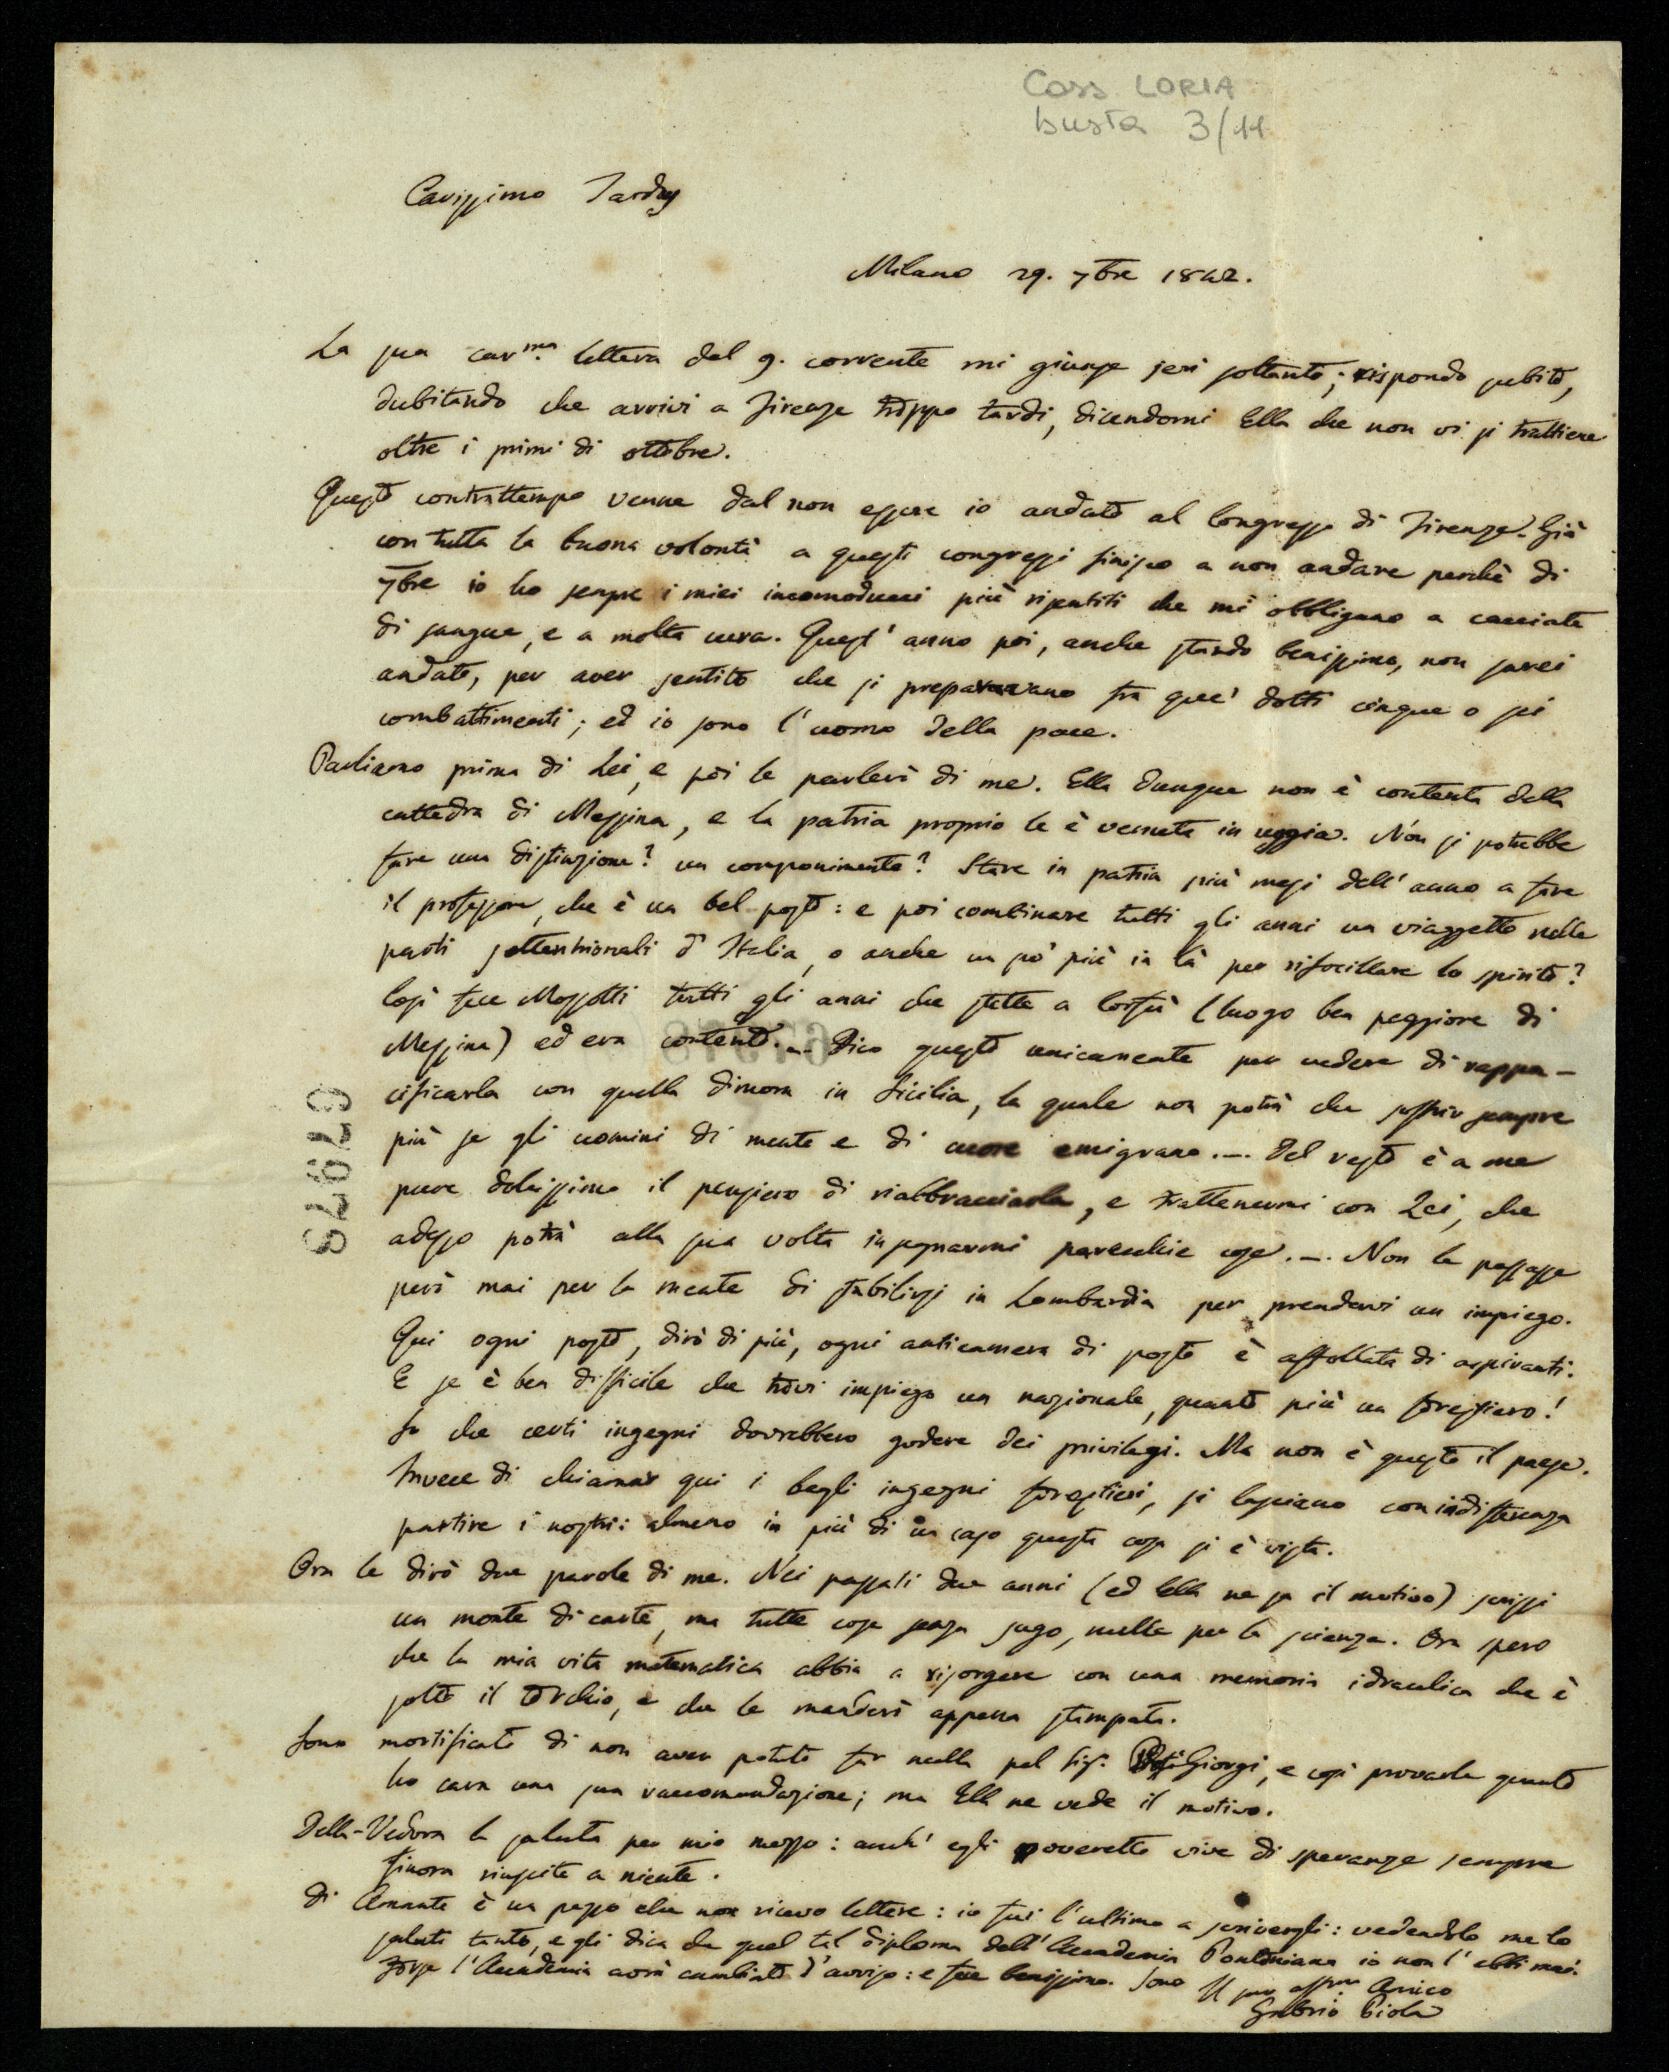 Cass LORIA
busta 3/11
Carissimo Tardy
Milano 29. 7bre 1842.
La sua car.ma lettera del 9. corrente mi giunse jeri soltanto; rispondo subito,
dubitando che arrivi a Firenze troppo tardi, dicendomi Ella che non vi si trattiene
oltre i primi di ottobre.
Questo contrattempo venne dal non essere io andato al Congresso di Firenze. Già
con tutta la buona volontà a questi congressi finisco a non andare perchè di
7bre io ho sempre i miei incomoducci più risentiti che mi obbligano a cacciate
di sangue, e a molta cura. Quest' anno poi, anche stando benissimo, non sarei
andato, per aver sentito che si preparavano fra que' dotti cinque o sei
combattimenti; ed io sono l' uomo della pace.
Parliamo prima di Lei, e poi le parlerò di me. Ella dunque non è contenta della
cattedra di Messina, e la patria proprio le è venuta in uggia. Non si potrebbe
fare una distinzione? un componimento? Stare in patria più mesi dell' anno a fare
il professore, che è un bel posto: e poi combinare tutti gli anni un viaggetto nelle
parti settentrionali d' Italia, o anche un po' più in là per rifocillare lo spirito?
Così fece Mossotti tutti gli anni che stette a Corfù (luogo ben peggiore di
Messina) ed era contento. — Dico questo unicamente per vedere di rappa-
cificarla con quella dimora in Sicilia, la quale non potrà che soffrir sempre
più se gli uomini di mente e di cuore emigrano. — Del resto è a me
pure dolcissimo il pensiero di riabbracciarla, e trattenermi con Lei, che
adesso potrà alla sua volta insegnarmi parecchie cose. — Non le passasse
però mai per la mente di stabilirsi in Lombardia per prendervi un impiego.
Qui ogni posto, dirò di più, ogni anticamera di posto è affollata di aspiranti.
E se è ben difficile che trovi impiego un nazionale, quanto più un forestiero!
So che certi ingegni dovrebbero godere dei privilegi. Ma non è questo il paese.
Invece di chiamar qui i begli ingegni forestieri, si lasciano con indifferenza
partire i nostri: almeno in più di un caso questa cosa si è vista.
Ora le dirò due parole di me. Nei passati due anni (ed Ella ne sa il motivo) scrissi
un monte di carte, ma tutte cose senza sugo, nulla per la scienza. Ora spero
che la mia vita matematica abbia a risorgere con una memoria idraulica che è
sotto il torchio, e che le manderò appena stampata.
Sono mortificato di non aver potuto far nulla pel Sig. Giorgi, e così provarle quanto
ho cara una sua raccomandazione; ma Ella ne vede il motivo.
Della-Vedova la saluta per mio mezzo: anch' egli poveretto vive di speranze sempre
finora riuscite a niente.
Di Amante è un pezzo che non ricevo lettere: io fui l' ultimo a scrivergli: vedendolo me lo
saluti tanto, e gli dica che quel tal diploma dell' Accademia Pontoniana io non l' ebbi mai.
Forse l' Accademia avrà cambiato d' avviso: e fece benissimo. Sono
Il suo aff.mo Amico
Gabrio Piola
67978